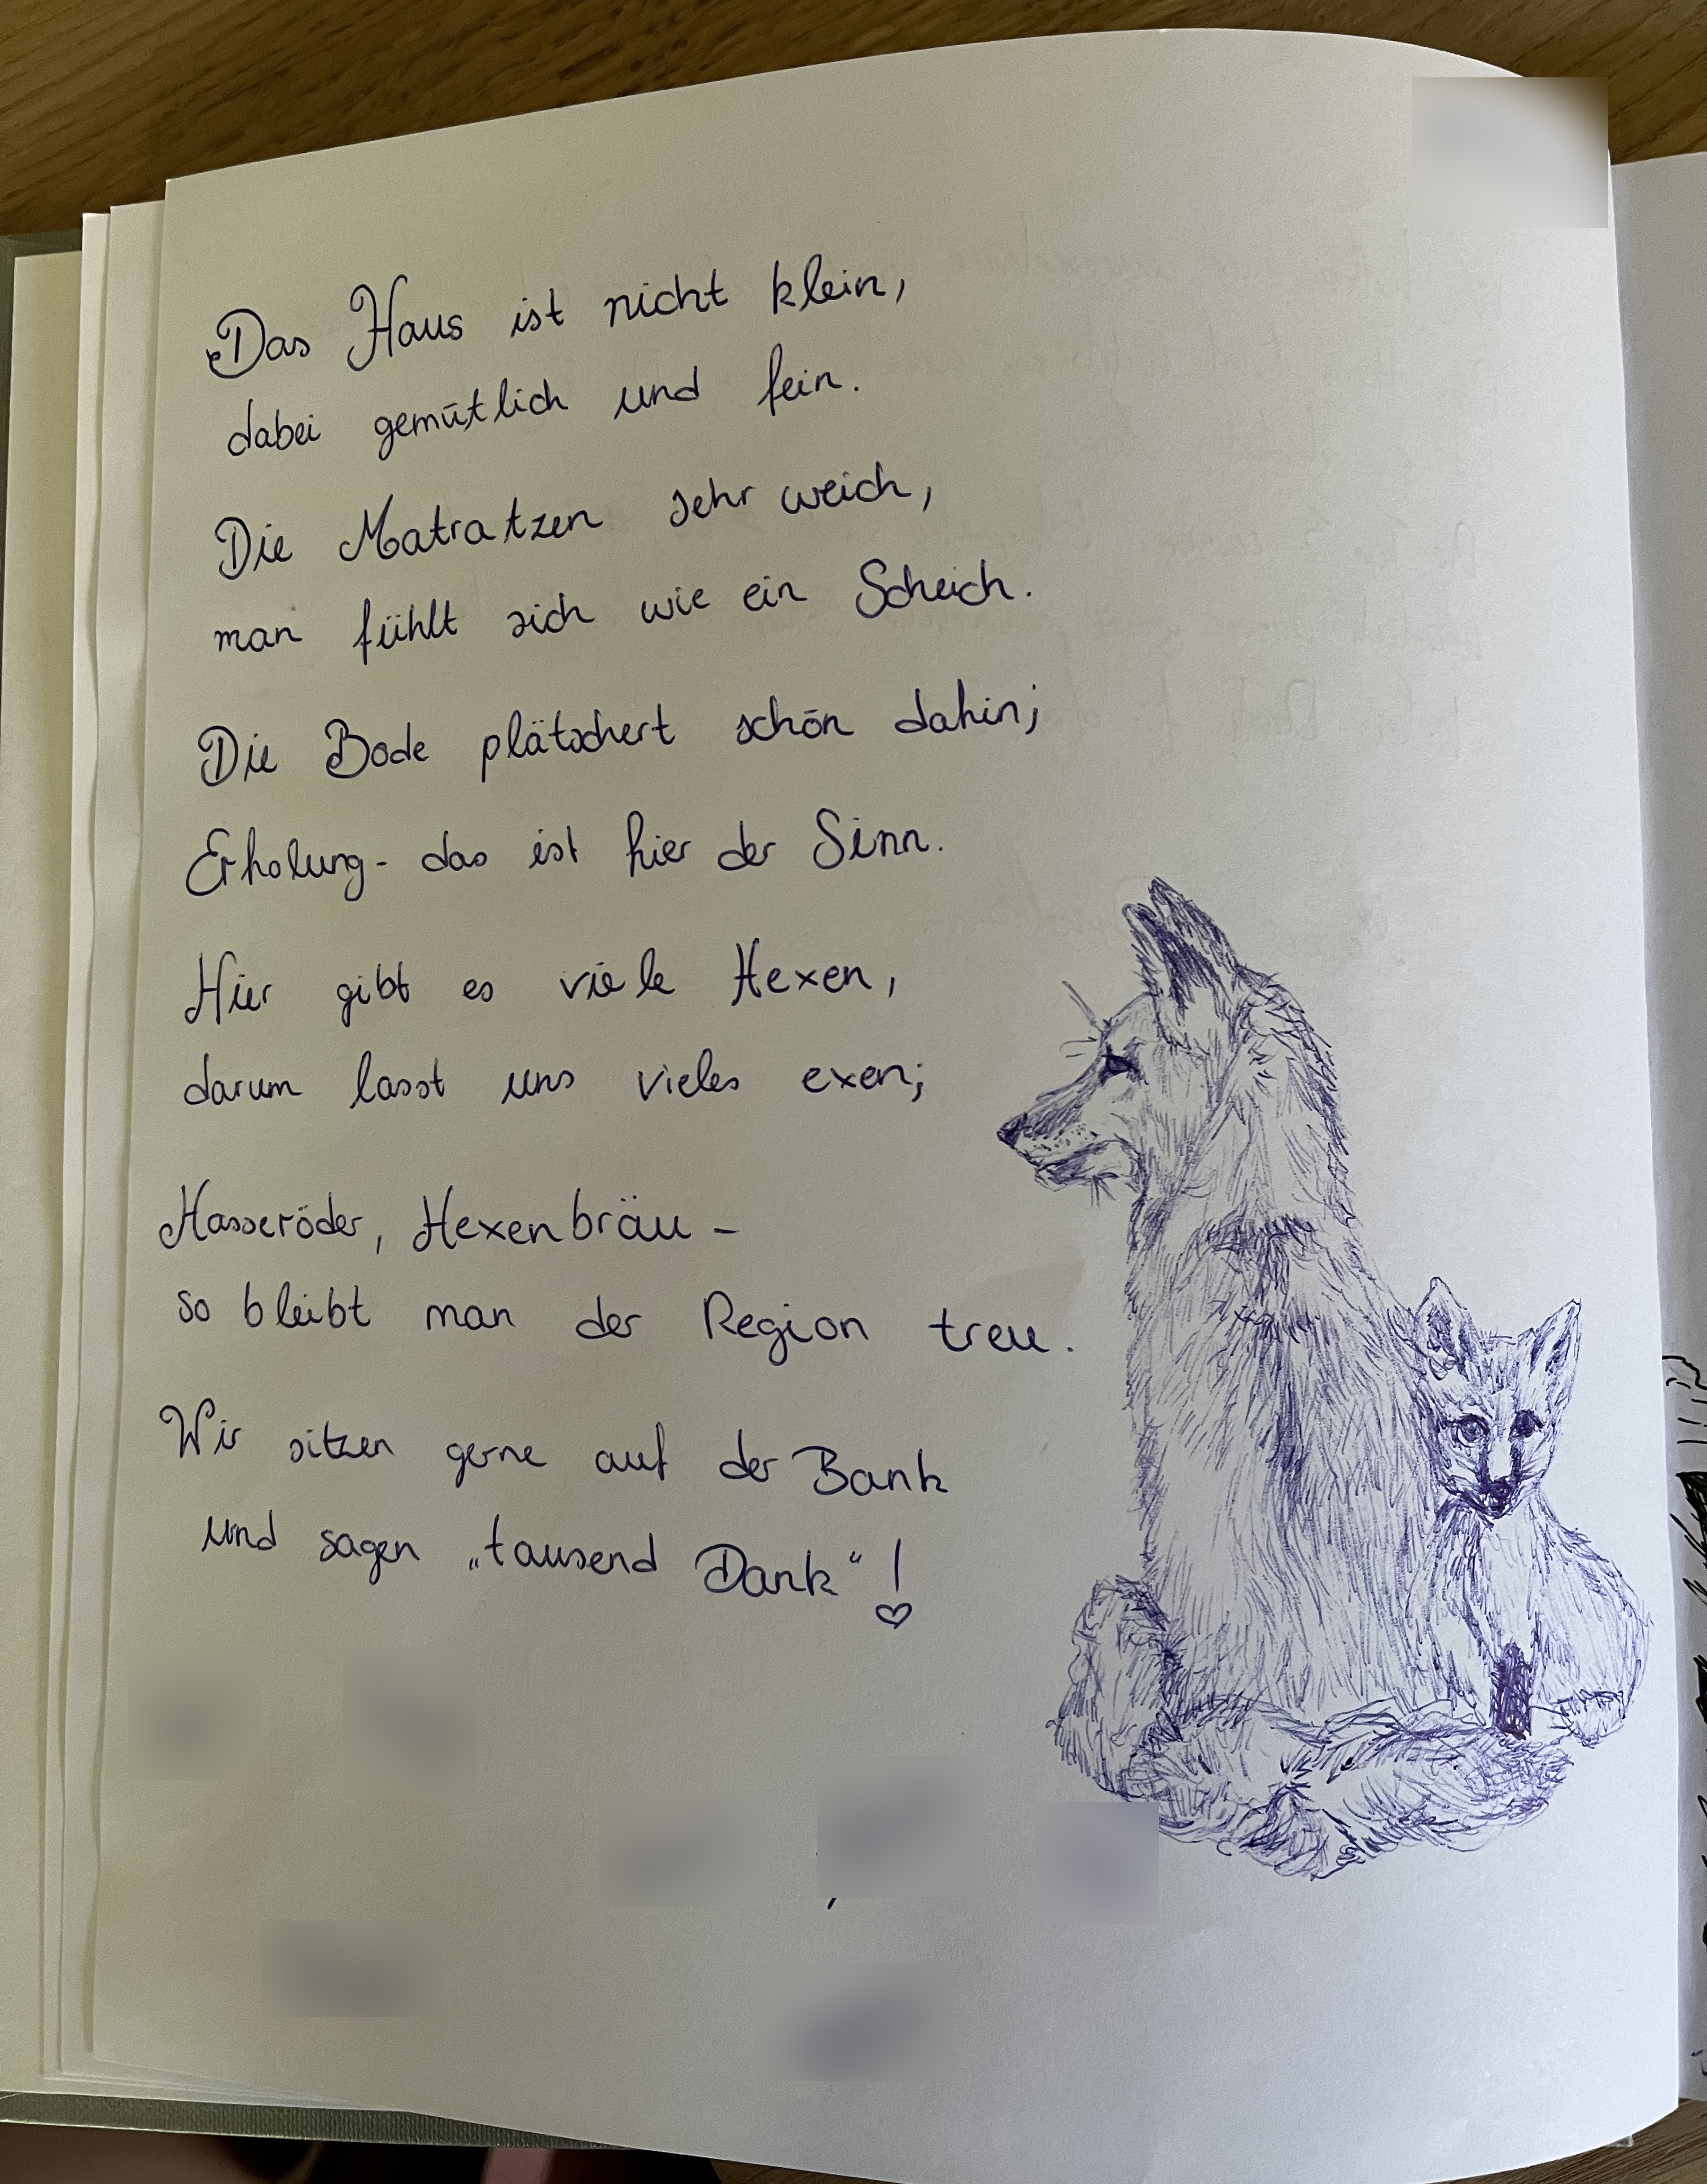 Das Haus ist nicht klein,
dabei gemütlich und fein.
Die Matratzen sehr weich,
man fühlt sich wie ein Scheich.
Die Bode plätschert schön dahin;
Erholung - das ist hier der Sinn.
Hier gibt es viele Hexen,
darum lasst uns vieles exen;
Hasseröder, Hexenbräu -
so bleibt man der Region treu.
Wir sitzen gerne auf der Bank
und sagen „tausend Dank“!